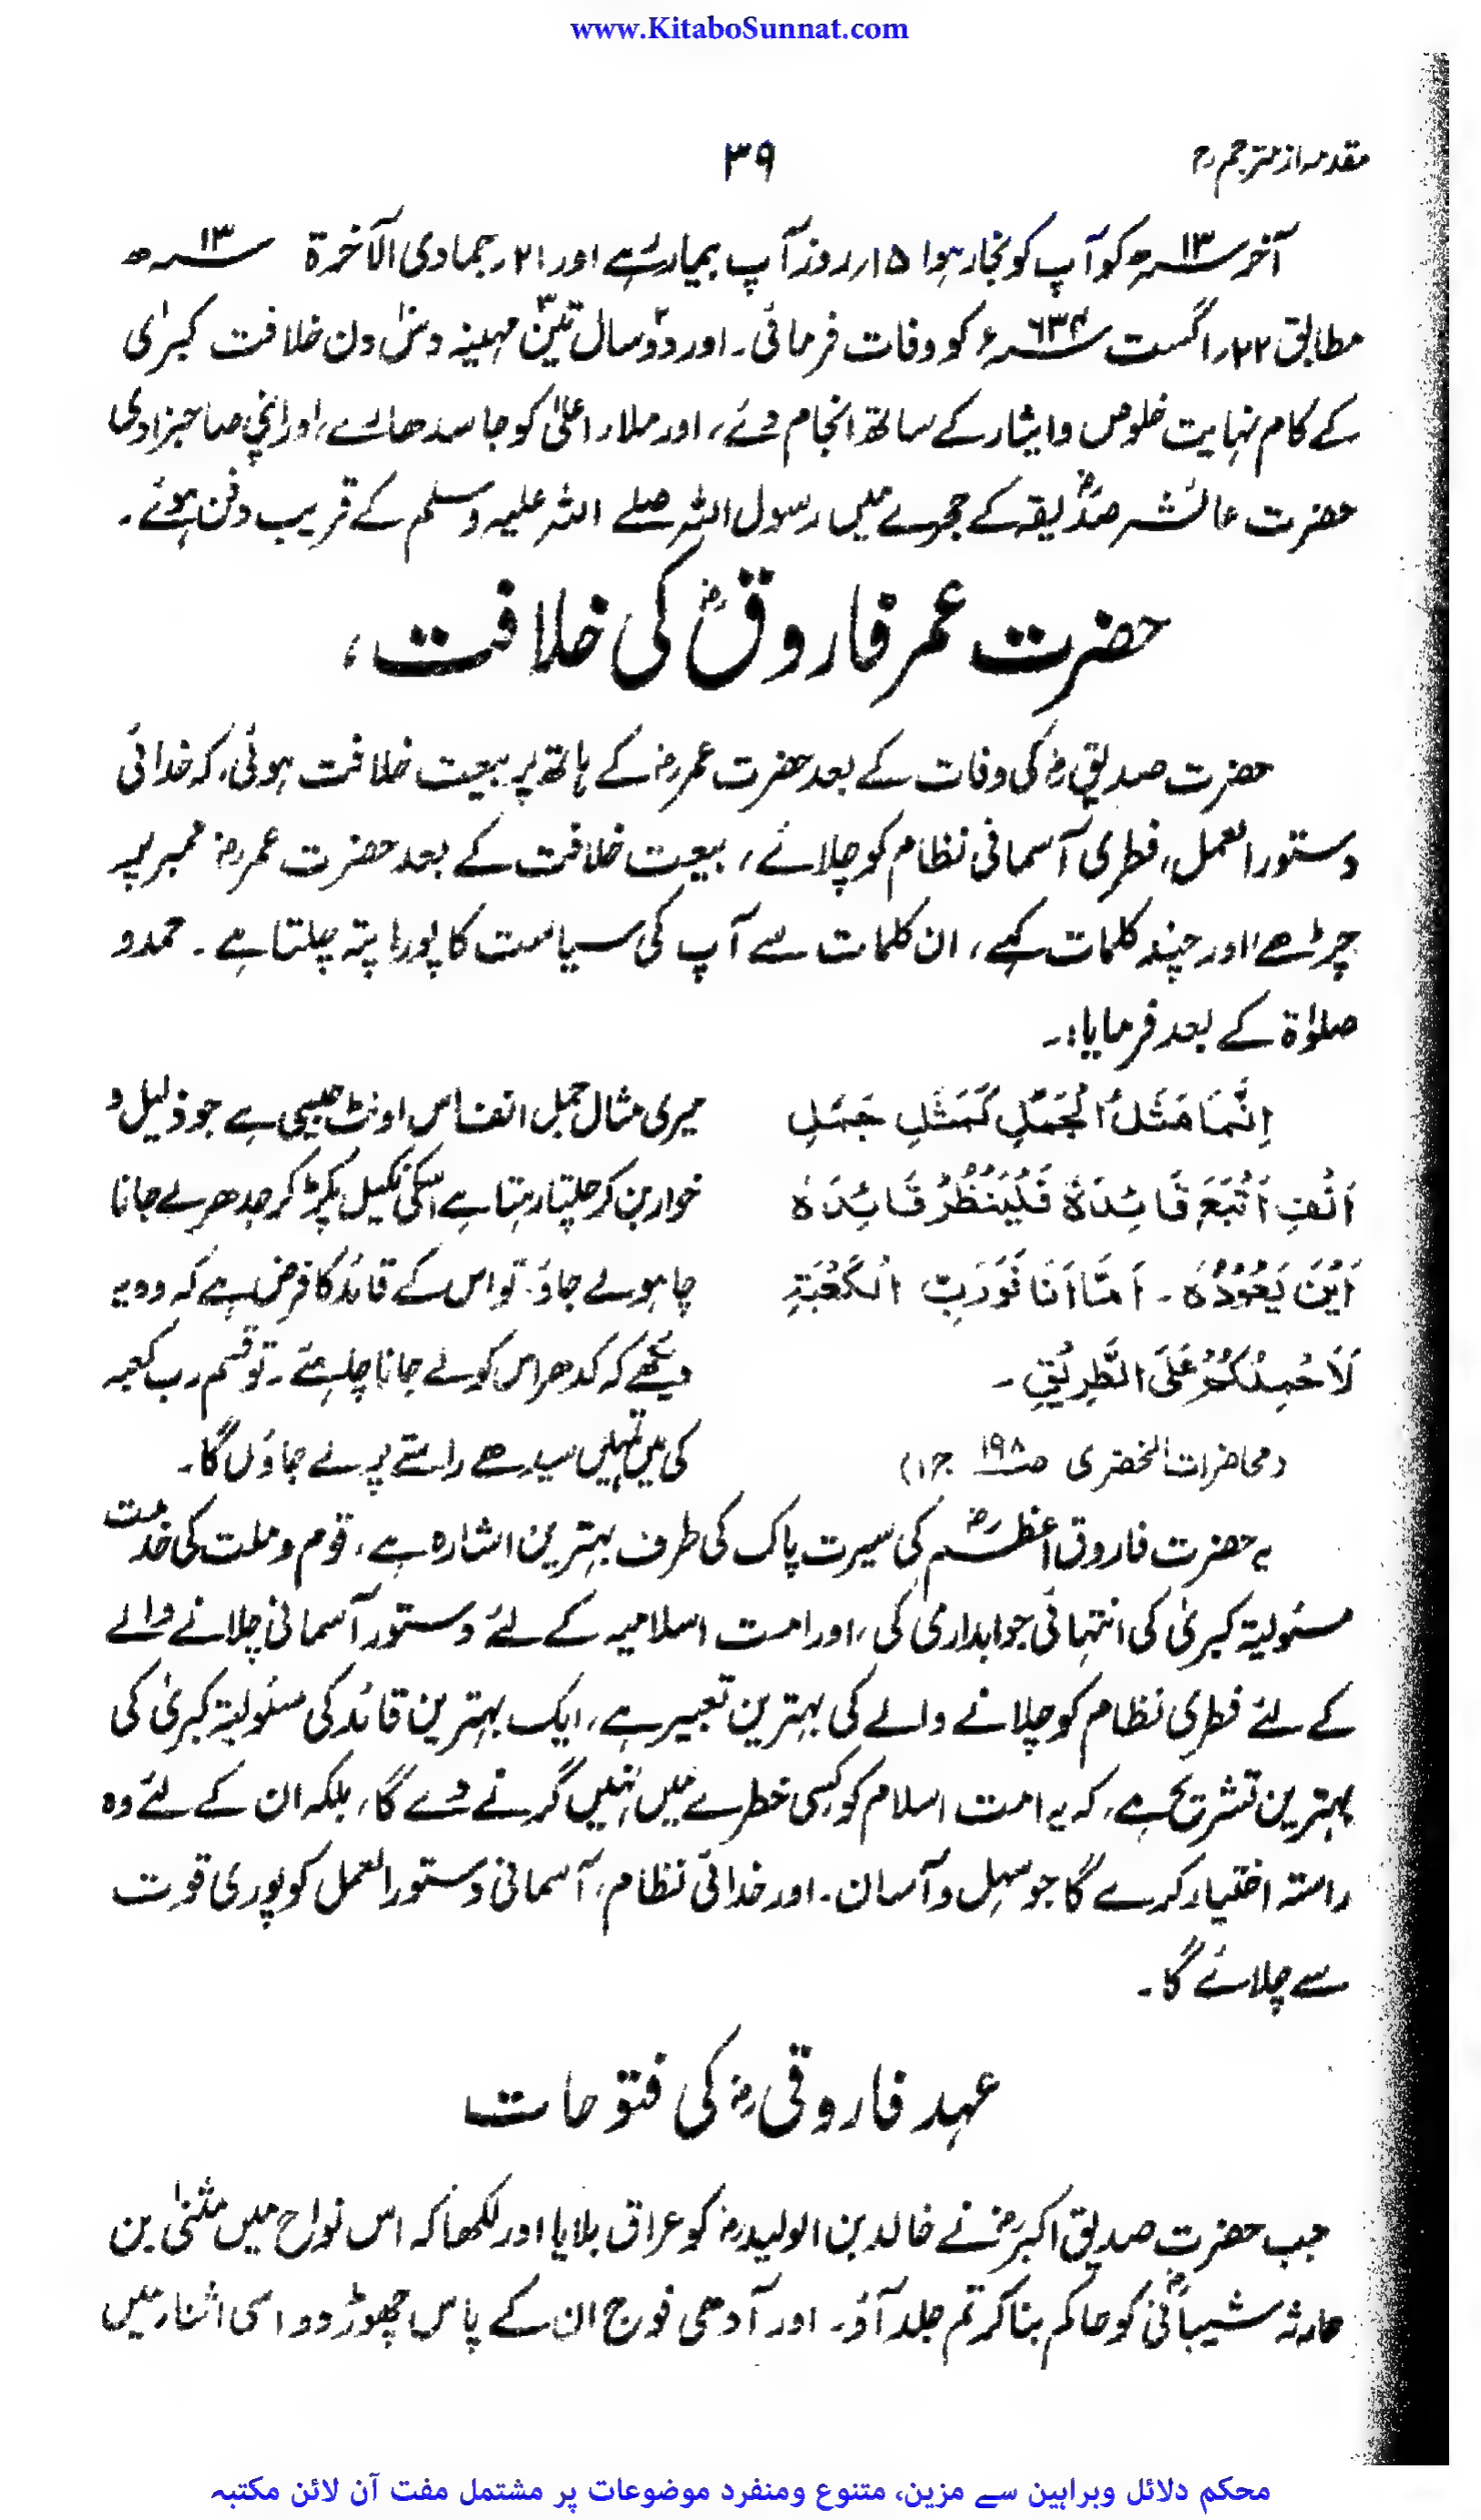 www.KitaboSunnat.com
مقدمہ از مترجم رح
۳۹
آخر ۱۳ھ کو آپ کو بخار ہوا ۱۵ر روز آپ بیمار رہے اور ۲۱ر جمادی الآخرۃ ۱۳ھ
مطابق ۲۲ر اگست ۶۳۴ء کو وفات فرمائی۔ اور دو۲ سال تین۳ مہینہ دس۱۰ دن خلافت کبرٰی
کے کام نہایت خلوص وایثار کے ساتھ انجام دئے، اور ملاء اعلٰی کو جا سدھارے، اور اپنی صاحبزادی
حضرت عائشہ صدیقہؓ کے حجرے میں رسول اللہ صلے اللہ علیہ وسلم کے قریب دفن ہوئے۔
حضرت عمر فاروقؓ کی خلافت،
حضرت صدیقؓ کی وفات کے بعد حضرت عمرؓ کے ہاتھ پر بیعت خلافت ہوئی، کہ خدائی
دستورالعمل، فطری آسمانی نظام کو چلائے، بیعت خلافت کے بعد حضرت عمرؓ ممبر پہ
چڑھے اور چند کلمات کہے، ان کلمات سے آپ کی سیاست کا پورا پتہ چلتا ہے۔ حمد و
صلوٰۃ کے بعد فرمایا:۔
اِنَّمَا مَثَلُ الْجَمَلِ كَمَثَلِ جَمَلِ
اَنْفِ اَتْبَعَ قَائِدَهٗ فَلْيَنْظُرْ قَائِدَهٗ
اَيْنَ يَعُوْدُهٗ۔ اَمَّا اَنَا فَوَرَبِّ الْكَعْبَةِ
لَاَحْمِلُكُمْ عَلَى الطَّرِيْقِ۔
(محاضرات الخضری ص ۱۹۸ ج۱)
میری مثال جمل انفاس اونٹ جیسی ہے جو ذلیل و
خوار بن کر چلتا رہتا ہے اسکی نکیل پکڑ کر جدھر لے جانا
چاہو لے جاؤ۔ تو اس کے قائد کا فرض ہے کہ وہ یہ
دیکھے کہ کدھر اس کو لے جانا چاہئے۔ تو قسم رب کعبہ
کی میں تمہیں سیدھے راستے پر لے جاؤں گا۔
یہ حضرت فاروق اعظمؓ کی سیرت پاک کی طرف بہترین اشارہ ہے، قوم و ملت کی خدمت
مسئولیۃ کبریٰ کی انتہائی جوابداری کی، اور امت اسلامیہ کے لئے دستور آسمانی چلانے والے
کے لئے فطری نظام کو چلانے والے کی بہترین تعبیر ہے، ایک بہترین قائد کی مسئولیۃ کبریٰ کی
بہترین تشریح ہے، کہ یہ امت اسلام کو کسی خطرے میں نہیں گرنے دے گا، بلکہ ان کے لئے وہ
راستہ اختیار کرے گا جو سہل و آسان۔ اور خدائی نظام، آسمانی دستورالعمل کو پوری قوت
سے چلائے گا۔
عہد فاروقیؓ کی فتوحات
جب حضرت صدیق اکبرؓ نے خالد بن الولیدؓ کو عراق بلایا اور لکھا کہ اس نواح میں مثنیٰ بن
حارثہ شیبانیؓ کو حاکم بنا کر تم جلد آؤ۔ اور آدھی فوج ان کے پاس چھوڑ دو اسی اثناء میں
محکم دلائل وبراہین سے مزین، متنوع ومنفرد موضوعات پر مشتمل مفت آن لائن مکتبہ